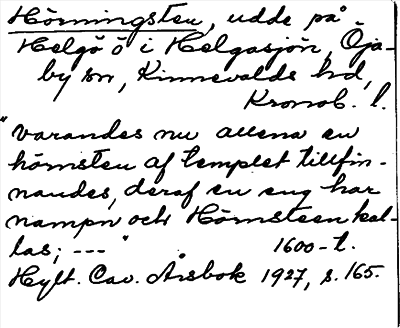 Hörningsten, udde på
Helgö ö i Helgasjön, Öja-
by sn, Kinnevalds hd,
Kronob. l.
"varandes nu allena en
hörnsten af templet tillfin-
nandes, deraf en eng har
nampn och Hörnsteen kal-
las; --- "
1600-t.
Hylt. Cav. Årsbok 1927, s. 165.